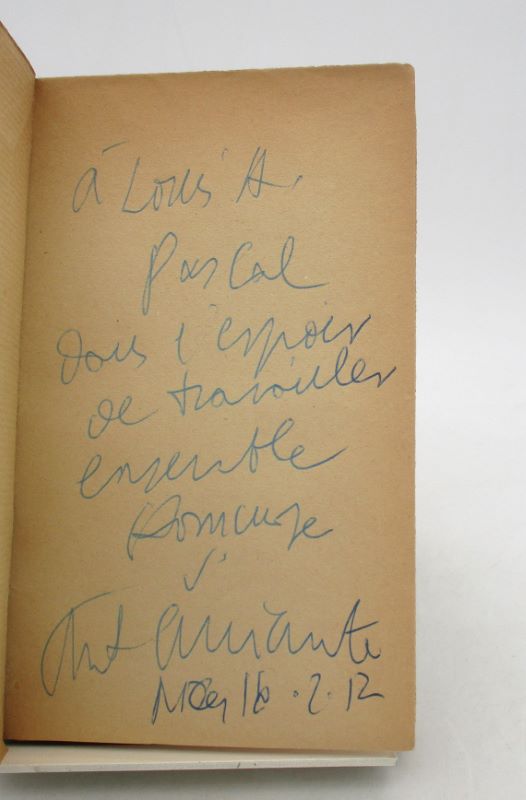 à Louis A.
Pascal
dans l'espoir
de travailler
ensemble
Hommage
d'
Ant Aniante